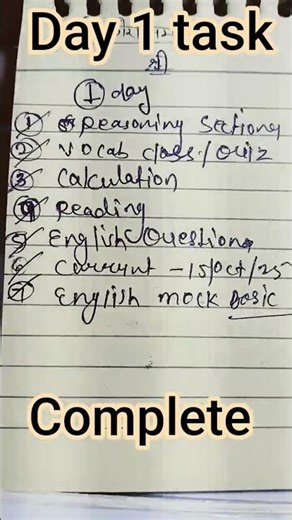 Day 1 task
श्री
① day
① Reasoning Section
② Vocab class/Quiz
③ Calculation
④ Reading
5 English Question
6 Current - 15/Oct/25
7 English mock Basic
Complete